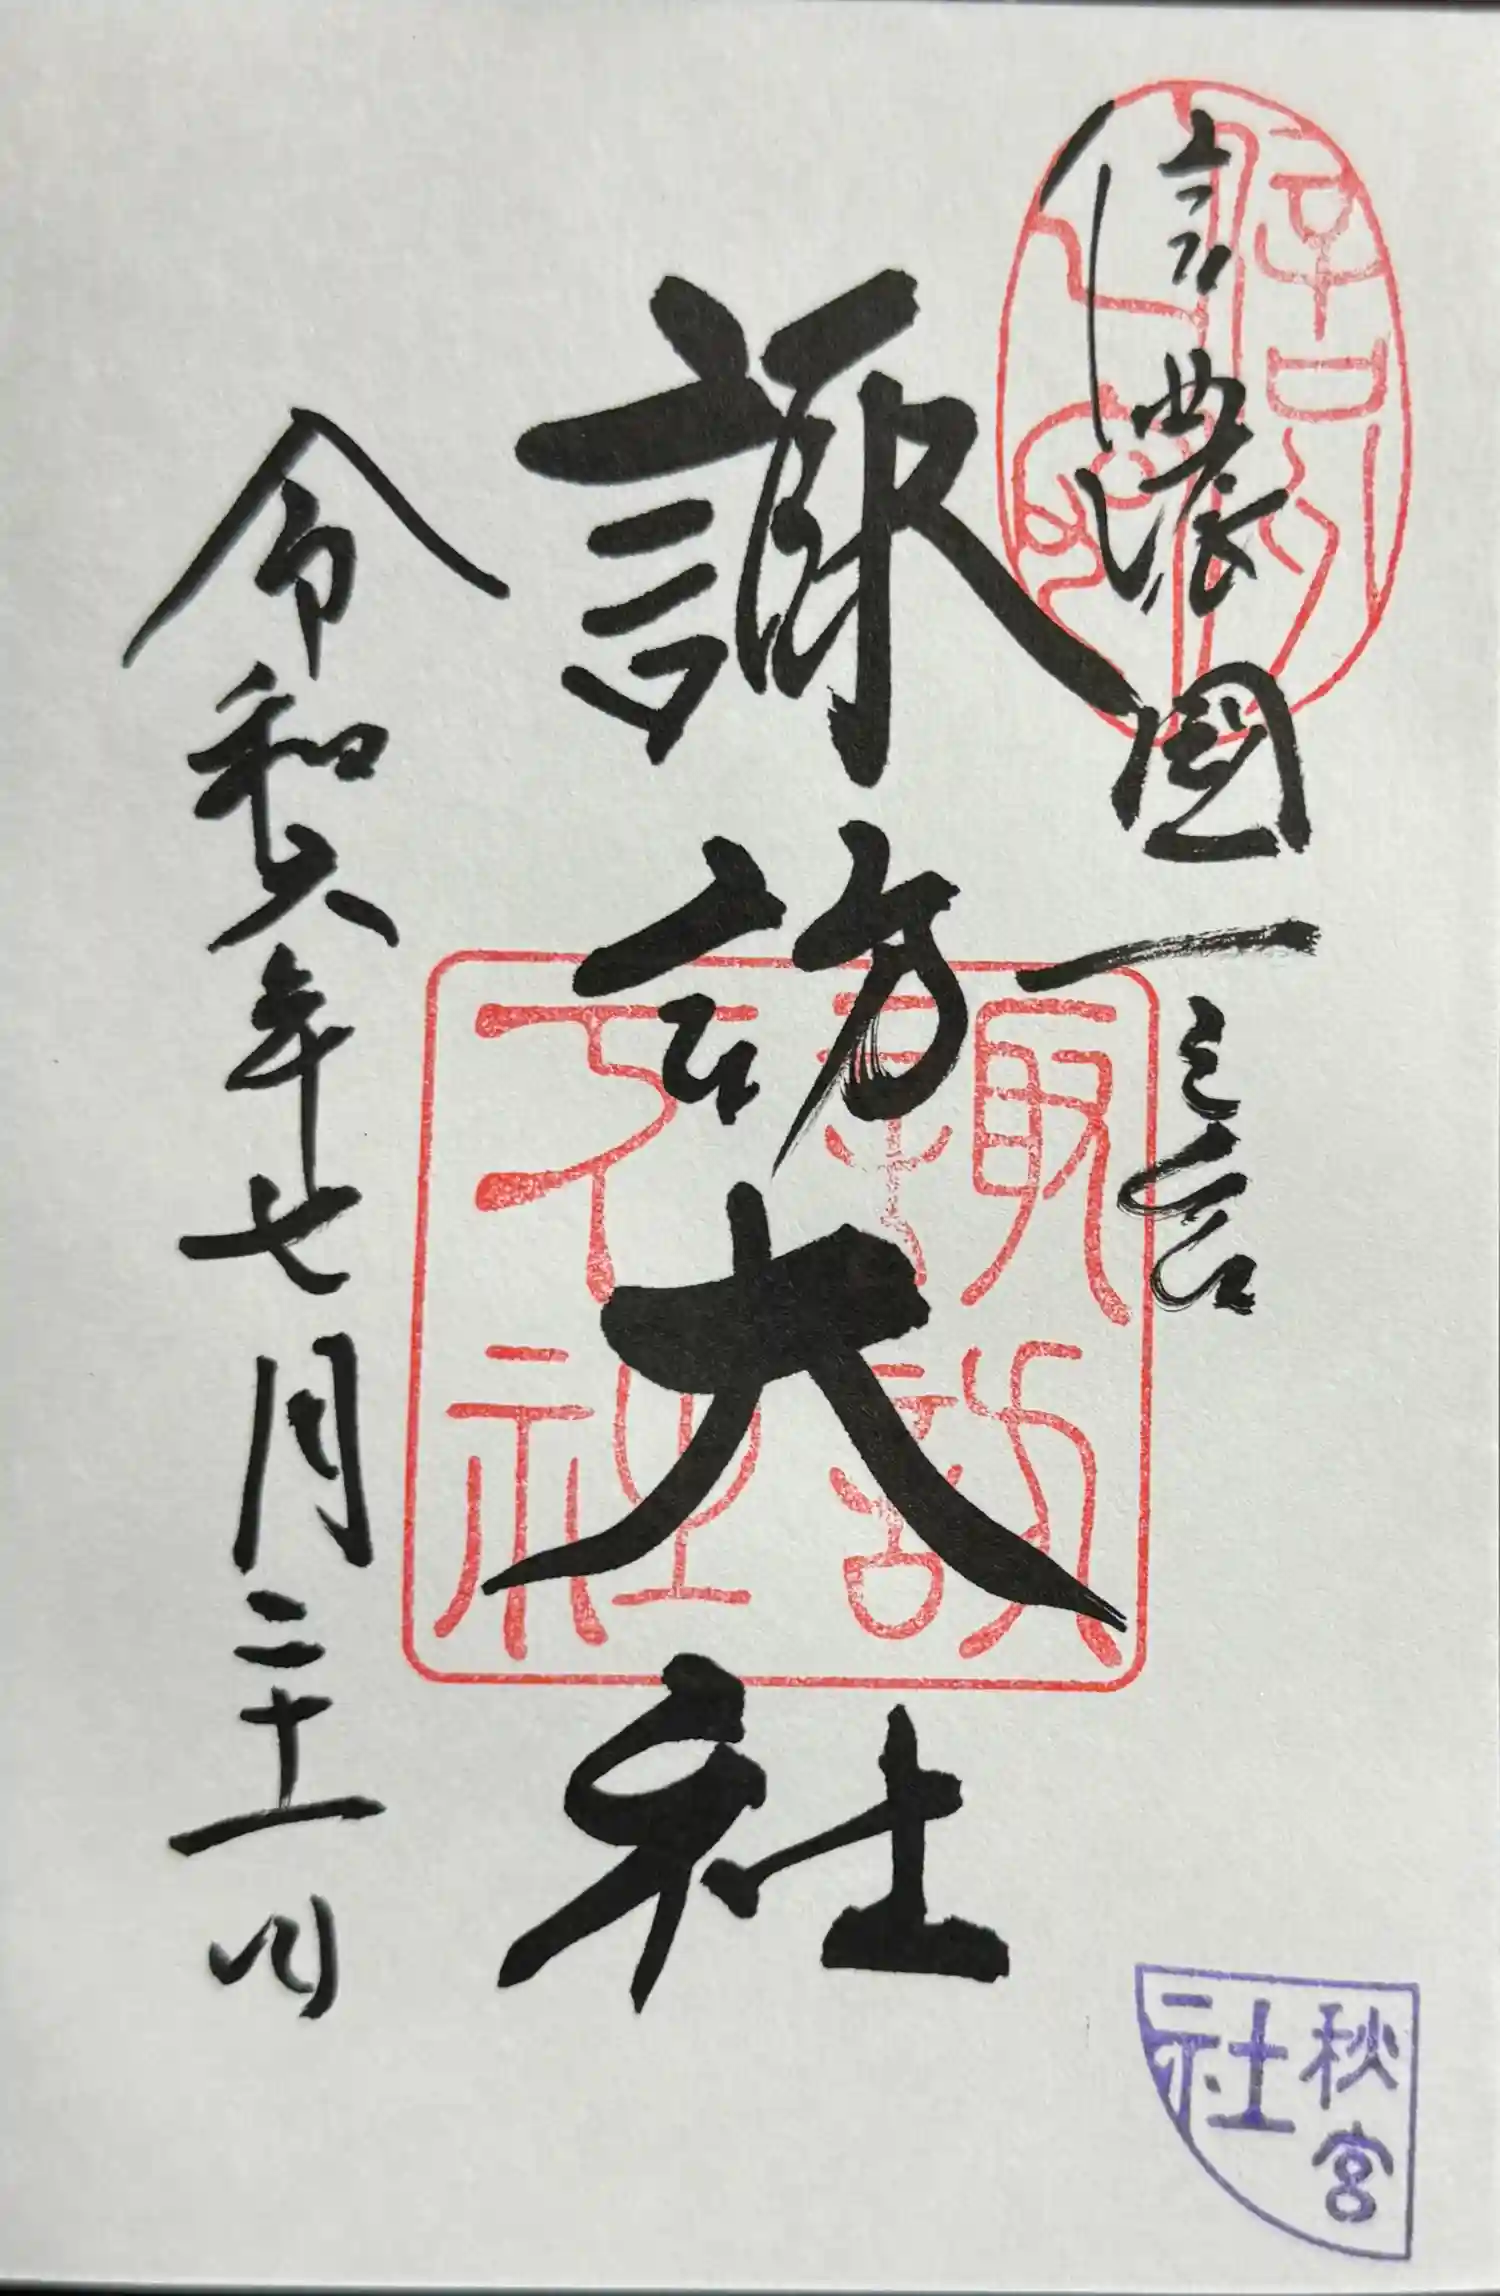 信濃國一之宮
諏訪大社
令和六年七月二十一日
諏訪
大社
秋宮
社